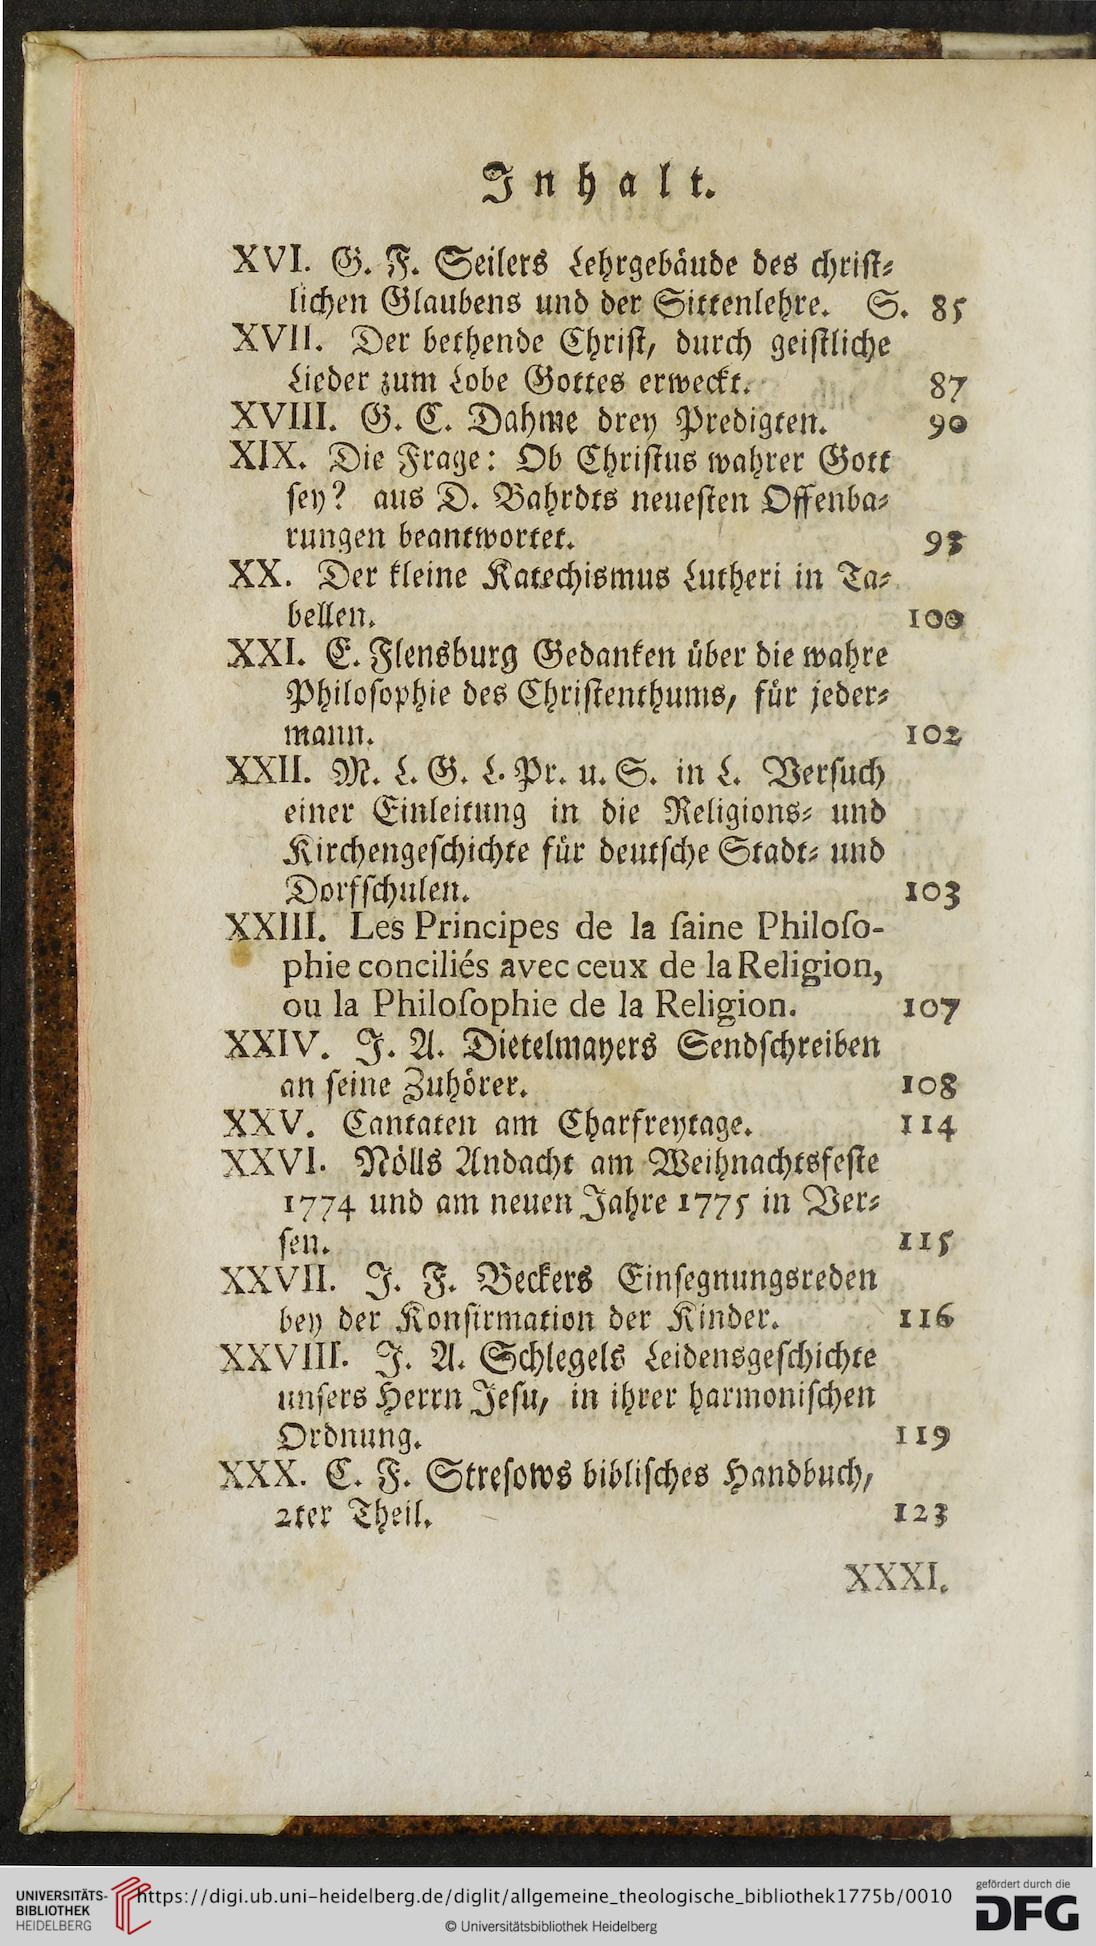 Inhalt.
XVI. G. F. Seilers Lehrgebäude des christ⸗
lichen Glaubens und der Sittenlehre. S. 85
XVII. Der bethende Christ, durch geistliche
Lieder zum Lobe Gottes erweckt. 87
XVIII. G. C. Dahme drey Predigten. 90
XIX. Die Frage: Ob Christus wahrer Gott
sey? aus D. Bahrdts neuesten Offenba⸗
rungen beantwortet. 93
XX. Der kleine Katechismus Lutheri in Ta⸗
bellen. 100
XXI. E. Flensburg Gedanken über die wahre
Philosophie des Christenthums, für jeder⸗
mann. 102
XXII. M. L. G. L. Pr. u. S. in L. Versuch
einer Einleitung in die Religions⸗ und
Kirchengeschichte für deutsche Stadt⸗ und
Dorfschulen. 103
XXIII. Les Principes de la ſaine Philoſo-
phie conciliés avec ceux de la Religion,
ou la Philoſophie de la Religion. 107
XXIV. J. A. Dietelmayers Sendschreiben
an seine Zuhörer. 108
XXV. Cantaten am Charfreytage. 114
XXVI. Nölls Andacht am Weihnachtsfeste
1774 und am neuen Jahre 1775 in Ver⸗
sen. 115
XXVII. J. F. Beckers Einsegnungsreden
bey der Konfirmation der Kinder. 116
XXVIII. J. A. Schlegels Leidensgeschichte
unsers Herrn Jesu, in ihrer harmonischen
Ordnung. 119
XXX. C. F. Stresows biblisches Handbuch,
2ter Theil. 123
XXXI.
UNIVERSITÄTS-
BIBLIOTHEK
HEIDELBERG
https://digi.ub.uni-heidelberg.de/diglit/allgemeine_theologische_bibliothek1775b/0010
© Universitätsbibliothek Heidelberg
gefördert durch die
DFG